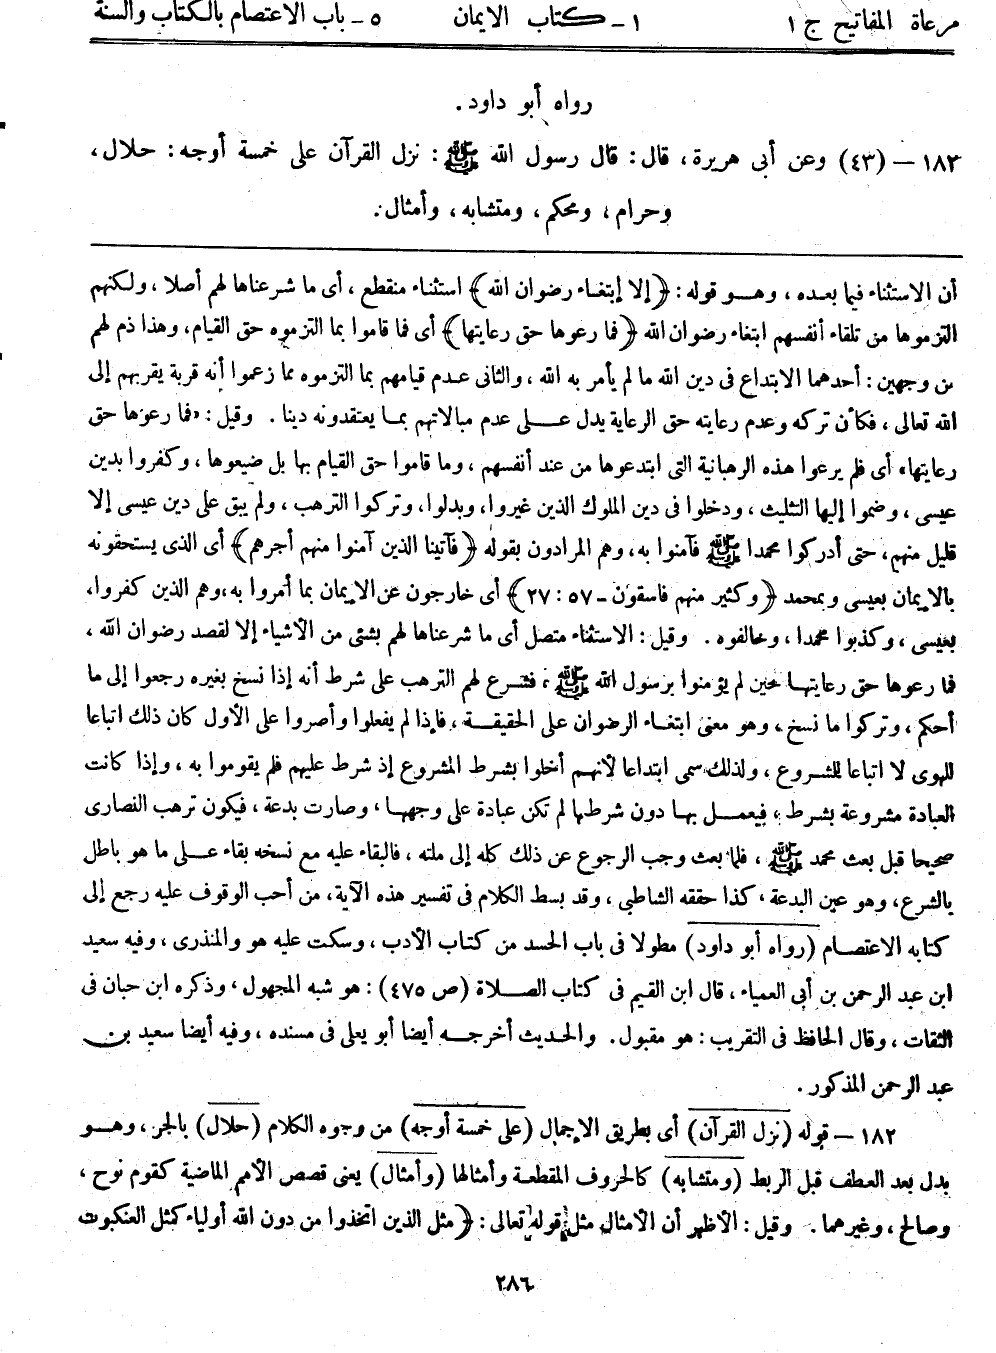 مرعاة المفاتيح ج ١ ١ - كتاب الايمان ٥ - باب الاعتصام بالكتاب والسنة
رواه أبو داود .
١٨٢ - (٤٣) وعن أبى هريرة ، قال : قال رسول الله ﷺ : نزل القرآن على خمسة أوجه : حلال ،
وحرام ، ومحكم ، ومتشابه ، وأمثال .
أن الاستثناء فيما بعده ، وهو قوله : ﴿إلا إبتغاء رضوان الله﴾ استثناء منقطع ، أى ما شرعناها لهم أصلا ، ولكنهم
التزموها من تلقاء أنفسهم ابتغاء رضوان الله ﴿فما رعوها حق رعايتها﴾ أى فما قاموا بما التزموه حق القيام ، وهذا ذم لهم
من وجهين : أحدهما الابتداع فى دين الله ما لم يأمر به الله ، والثانى عدم قيامهم بما التزموه مما زعموا أنه قربة يقربهم إلى
الله تعالى ، فكأن تركه وعدم رعايته حق الرعاية يدل على عدم مبالاتهم بما يعتقدونه دينا . وقيل : «فما رعوها حق
رعايتها» أى فلم يرعوا هذه الرهبانية التى ابتدعوها من عند أنفسهم ، وما قاموا حق القيام بها بل ضيعوها ، وكفروا بدين
عيسى ، وضموا إليها التثليث ، ودخلوا فى دين الملوك الذين غيروا ، وبدلوا ، وتركوا الترهب ، ولم يبق على دين عيسى إلا
قليل منهم ، حتى أدركوا محمدا ﷺ فآمنوا به ، وهم المرادون بقوله ﴿فآتينا الذين آمنوا منهم أجرهم﴾ أى الذى يستحقونه
بالايمان بعيسى وبمحمد ﴿وكثير منهم فاسقون - ٥٧ : ٢٧﴾ أى خارجون عن الايمان بما أمروا به ، وهم الذين كفروا ،
بعيسى ، وكذبوا محمدا ، وخالفوه . وقيل : الاستثناء متصل أى ما شرعناها لهم بشئى من الأشياء إلا لقصد رضوان الله ،
فما رعوها حق رعايتها حين لم يؤمنوا برسول الله ﷺ ، فشرع لهم الترهب على شرط أنه إذا نسخ بغيره رجعوا إلى ما
أحكم ، وتركوا ما نسخ ، وهو معنى ابتغاء الرضوان على الحقيقة ، فإذا لم يفعلوا وأصروا على الأول كان ذلك اتباعا
للهوى لا اتباعا للشروع ، ولذلك سمى ابتداعا لأنهم أخلوا بشرط المشروع إذ شرط عليهم فلم يقوموا به ، وإذا كانت
العبادة مشروعة بشرط ، فيعمل بها دون شرطها لم تكن عبادة على وجهها ، وصارت بدعة ، فيكون ترهب النصارى
صحيحا قبل بعث محمد ﷺ ، فلما بعث وجب الرجوع عن ذلك كله إلى ملته ، فالبقاء عليه مع نسخه بقاء على ما هو باطل
بالشرع ، وهو عين البدعة ، كذا حققه الشاطبى ، وقد بسط الكلام فى تفسير هذه الآية ، من أحب الوقوف عليه رجع إلى
كتابه الاعتصام (رواه أبو داود) مطولا فى باب الحسد من كتاب الأدب ، وسكت عليه هو والمنذرى ، وفيه سعيد
ابن عبد الرحمن بن أبى العمياء ، قال ابن القيم فى كتاب الصلاة (ص ٤٧٥) : هو شبه المجهول ، وذكره ابن حبان فى
الثقات ، وقال الحافظ فى التقريب : هو مقبول . والحديث أخرجه أيضا أبو يعلى فى مسنده ، وفيه أيضا سعيد بن
عبد الرحمن المذكور .
١٨٢ - قوله (نزل القرآن) أى بطريق الاجمال (على خمسة أوجه) من وجوه الكلام (حلال) بالجر ، وهو
بدل بعد العطف قبل الربط (ومتشابه) كالحروف المقطعة وأمثالها (وأمثال) يعنى قصص الأمم الماضية كقوم نوح ،
وصالح ، وغيرهما . وقيل : الأظهر أن الأمثال مثل قوله تعالى : ﴿مثل الذين اتخذوا من دون الله أولياء كمثل العنكبوت
٢٨٦